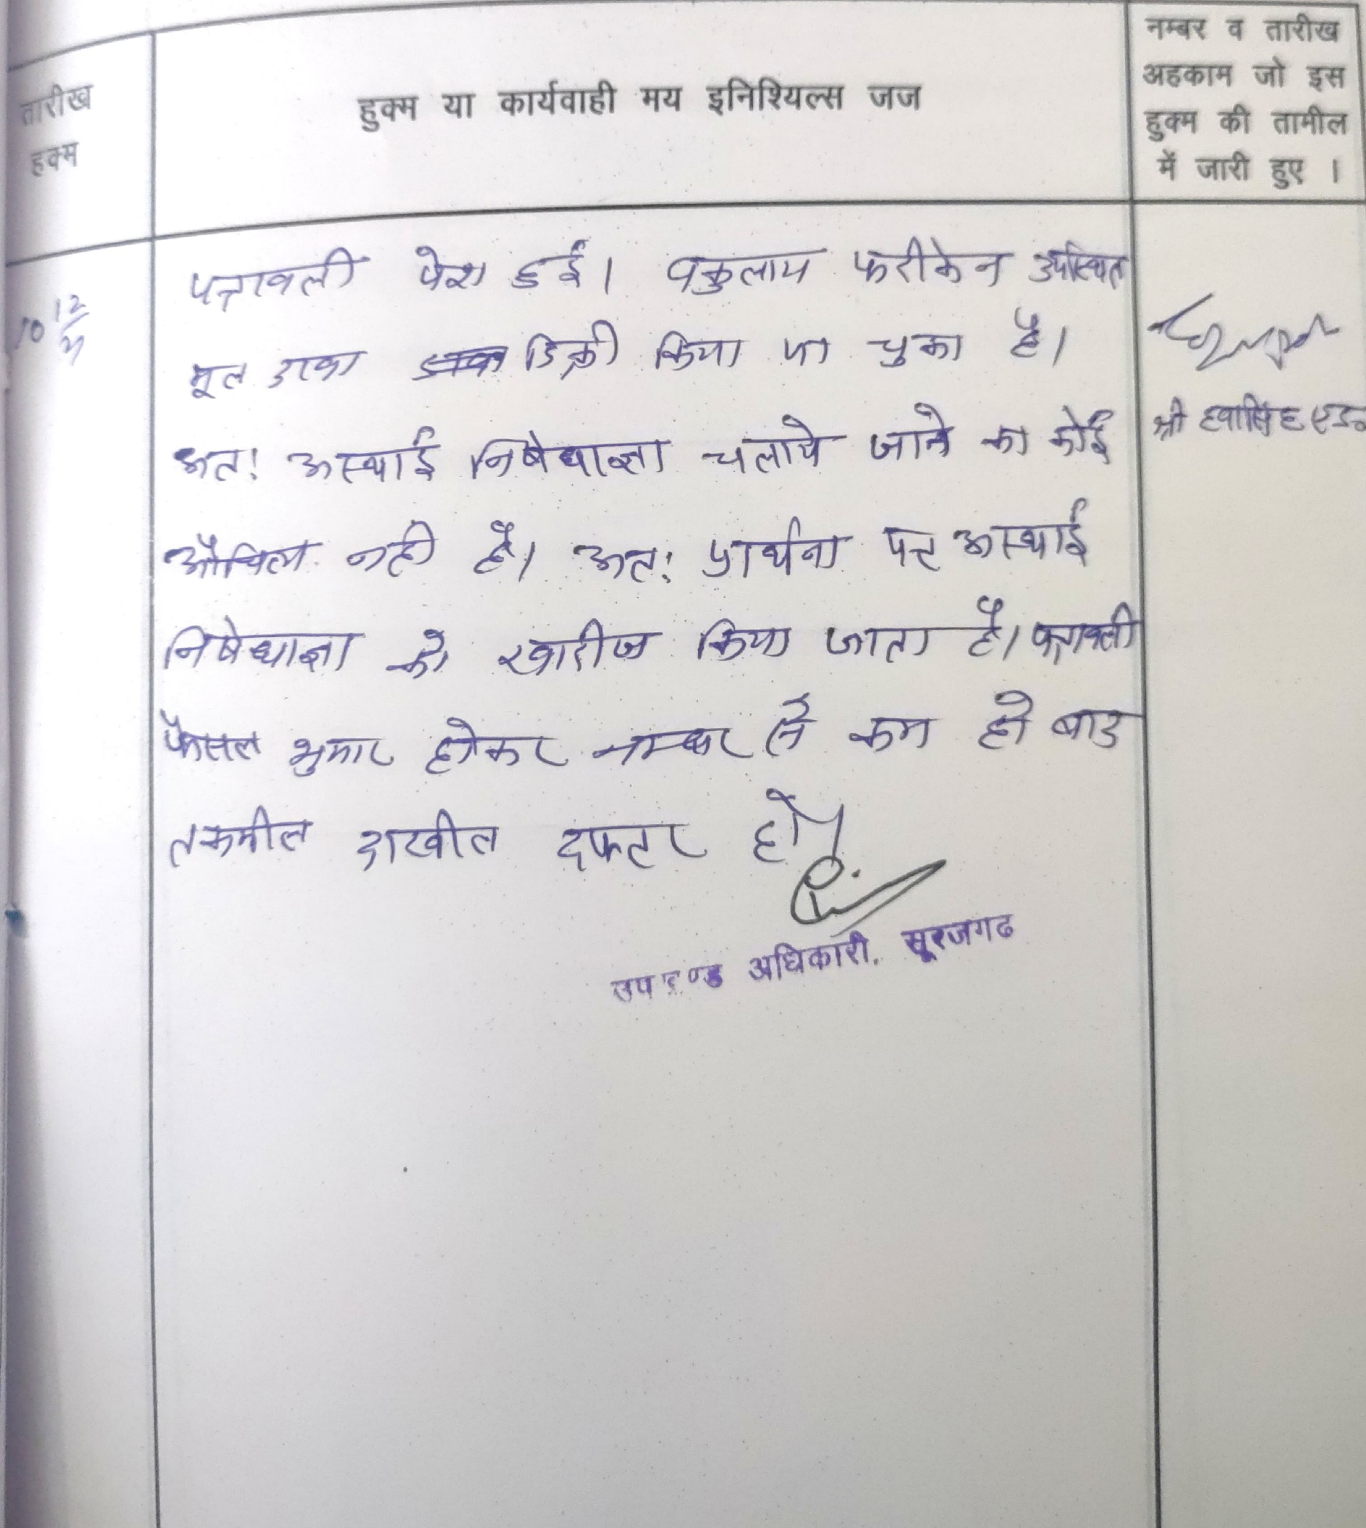 तारीख
हुक्म
हुक्म या कार्यवाही मय इनिशियल्स जज
नम्बर व तारीख
अहकाम जो इस
हुक्म की तामील
में जारी हुए ।
10 12
पत्रावली पेश हुई। वकुलाय फरीकेन उपस्थित
मूल दावा डिक्री किया जा चुका है।
अतः अस्थाई निषेधाज्ञा चलाये जाने का कोई
औचित्य नही है। अतः प्रार्थना पत्र अस्थाई
निषेधाज्ञा को खारीज किया जाता है। पत्रावली
फैसल शुमार होकर नम्बर से कम हो बाद
तकमील दाखील दफ्तर हो।
उपखण्ड अधिकारी, सूरजगढ
श्री हवासिंह एड०